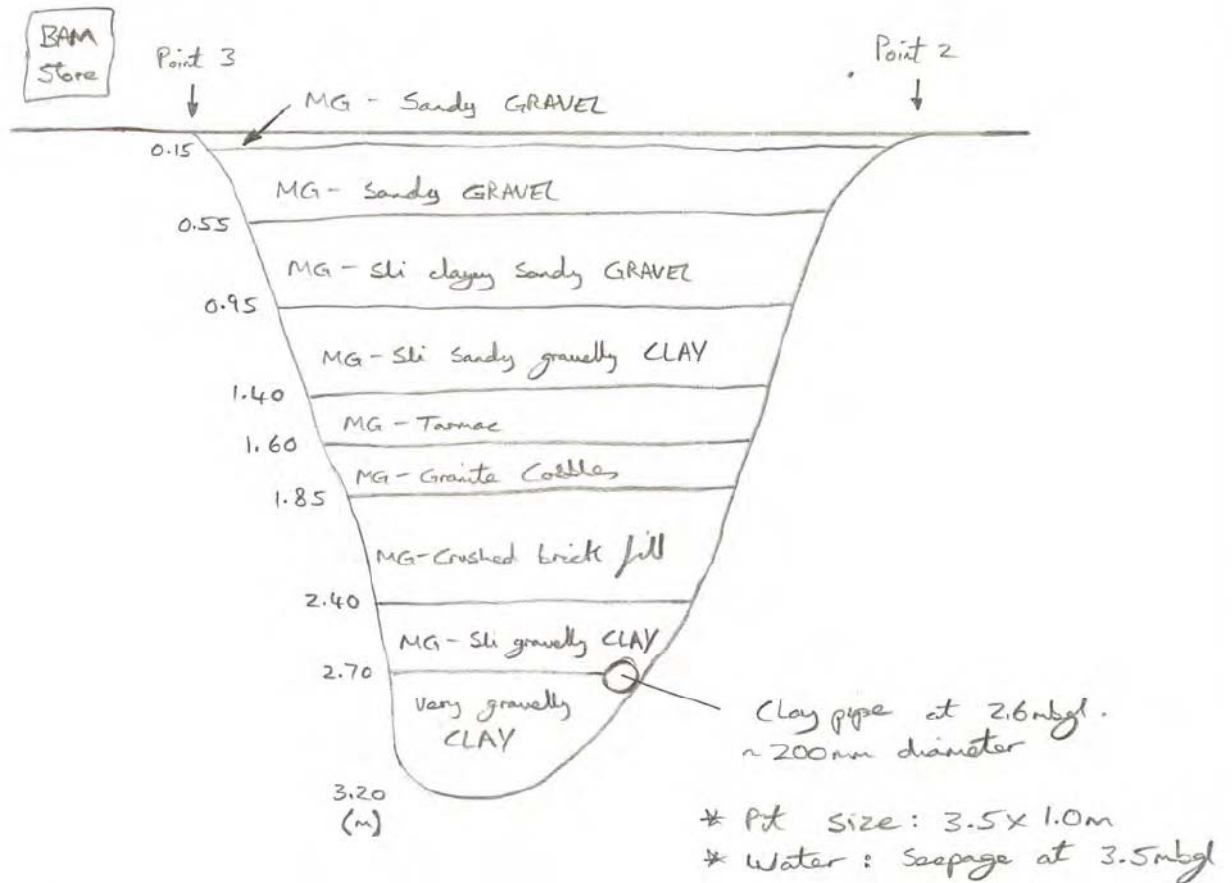 BAM
Store
Point 3
Point 2
MG - Sandy GRAVEL
0.15
MG - Sandy GRAVEL
0.55
MG - Sli clayey Sandy GRAVEL
0.95
MG - Sli Sandy gravelly CLAY
1.40
MG - Tarmac
1.60
MG - Granite Cobbles
1.85
MG - Crushed brick fill
2.40
MG - Sli gravelly CLAY
2.70
Very gravelly
CLAY
Clay pipe at 2.6mbgl.
~ 200mm diameter
3.20
(m)
* Pit Size: 3.5 x 1.0m
* Water: Seepage at 3.5mbgl